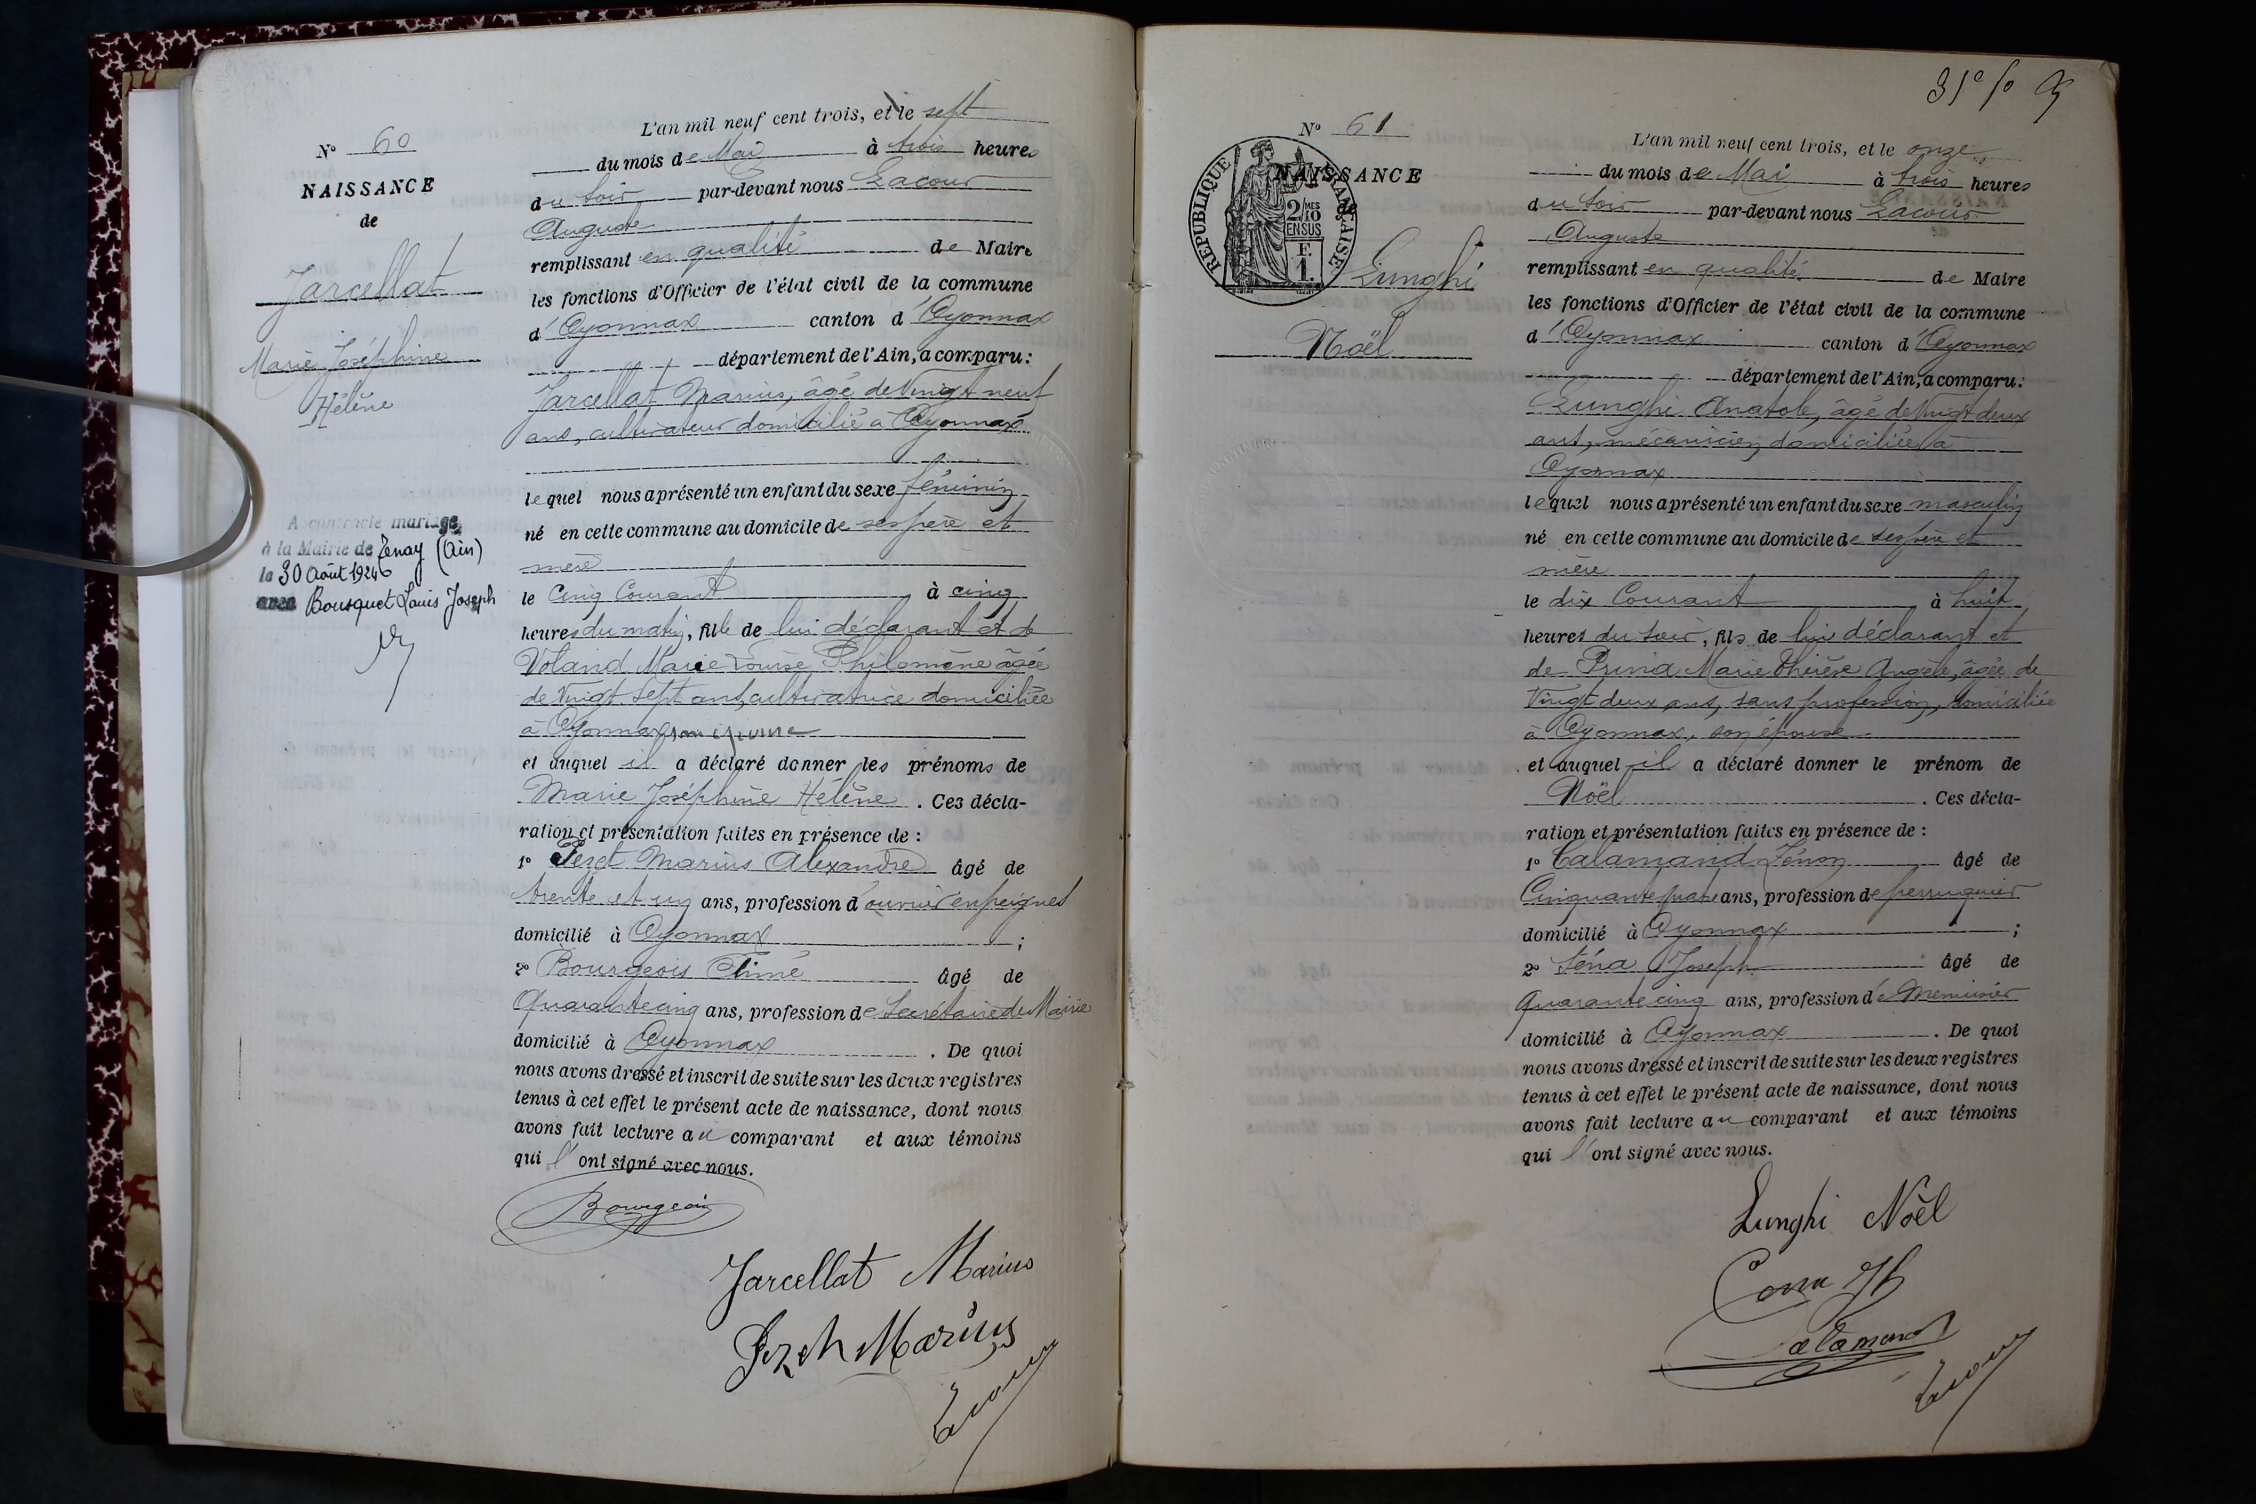 N° 60
NAISSANCE
de
Jarcellat
Marie Joséphine
Hélène
A contracté mariage
à la Mairie de Tenay (Ain)
le 30 Août 1924
avec Bousquet Louis Joseph
L'an mil neuf cent trois, et le sept
du mois de Mai à trois heures
du soir par-devant nous Lacour
Auguste
remplissant en qualité de Maire
les fonctions d'Officier de l'état civil de la commune
d'Oyonnax canton d'Oyonnax
département de l'Ain, a comparu :
Jarcellat Marius, âgé de Vingt neuf
ans, cultivateur domicilié à Oyonnax
lequel nous a présenté un enfant du sexe féminin
né en cette commune au domicile de ses père et
mère
le Cinq Courant à cinq
heures du matin, fille de lui déclarant et de
Voland Marie Louise Philomène âgée
de Vingt sept ans, cultivatrice domiciliée
à Oyonnax, son épouse
et auquel il a déclaré donner les prénoms de
Marie Joséphine Hélène . Ces décla-
ration et présentation faites en présence de :
1° Marius Alexandre âgé de
trente et un ans, profession d'ouvrier en peignes
domicilié à Oyonnax ;
2° Bourgeois Aimé âgé de
Quarante cinq ans, profession de Secrétaire de Mairie
domicilié à Oyonnax . De quoi
nous avons dressé et inscrit de suite sur les deux registres
tenus à cet effet le présent acte de naissance, dont nous
avons fait lecture au comparant et aux témoins
qui l'ont signé avec nous.
Bourgeois
Jarcellat Marius
Marius
Lacour
31e fo
N° 61
NAISSANCE
de
RÉPUBLIQUE FRANÇAISE
2/10 MES
EN SUS
F.
1.
Lunghi
Noël
L'an mil neuf cent trois, et le onze
du mois de Mai à trois heures
du soir par-devant nous Lacour
Auguste
remplissant en qualité de Maire
les fonctions d'Officier de l'état civil de la commune
d'Oyonnax canton d'Oyonnax
département de l'Ain, a comparu :
Lunghi Anatole, âgé de Vingt deux
ans, mécanicien, domiciliée à
Oyonnax
lequel nous a présenté un enfant du sexe masculin
né en cette commune au domicile de ses père et
mère
le dix Courant à huit
heures du soir, fils de lui déclarant et
de Marie Thérèse Angèle, âgée de
Vingt deux ans, sans profession, domiciliée
à Oyonnax, son épouse
et auquel il a déclaré donner le prénom de
Noël . Ces décla-
ration et présentation faites en présence de :
1° Calamand Zénon âgé de
Cinquante quatre ans, profession de perruquier
domicilié à Oyonnax ;
2° Joseph âgé de
Quarante cinq ans, profession de Menuisier
domicilié à Oyonnax . De quoi
nous avons dressé et inscrit de suite sur les deux registres
tenus à cet effet le présent acte de naissance, dont nous
avons fait lecture au comparant et aux témoins
qui l'ont signé avec nous.
Lunghi Noël
Calamand
Lacour